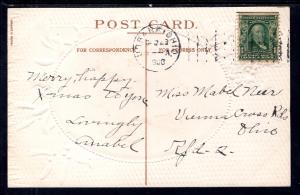 POST CARD.
FOR CORRESPONDENCE
FOR ADDRESS ONLY.
OHIO
Merry, happy
Xmas to you
Lovingly
Anabel
Miss Mabel Neer
Vienna Cross Rds
Ohio
Rfd-2